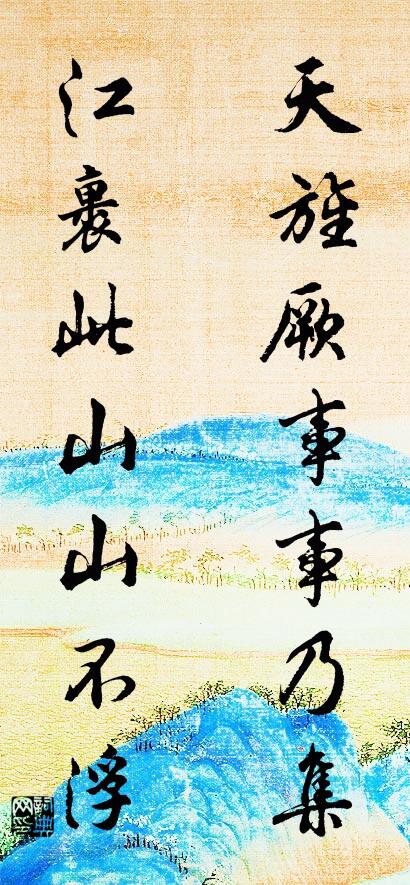 天旌厥事事乃集
江裹此山山不浮